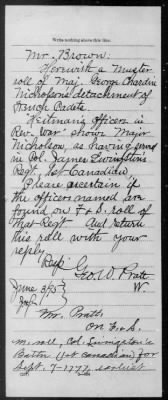 Write nothing above this line.
Mr. Brown:
Herewith a muster
roll of Maj. George Chardin
Nicholson's detachment of
French Cadets.
Heitman's Officers in
Rev. War shows Major
Nicholson, as having served
in Col. James Livingston's
Regt. 1st Canadian
Please ascertain if
the officers named are
found on F & S. roll of
that Regt. And return
this roll with your
reply.
Resp'
Geo. W. Pratt
June 3/35 W.
Mr. Pratt,
On F. & S.
m. roll, Col. Livingston's
Battn (1st Canadian) for
Sept. 7-1777, earliest